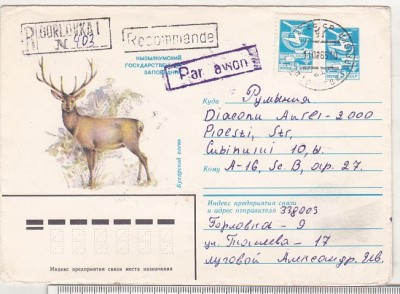 R GORLOVKA 1
N 902
Recommande
Par avion
КЫЗЫЛКУМСКИЙ
ГОСУДАРСТВЕННЫЙ
ЗАПОВЕДНИК
Бухарский олень
Куда Румыния
Diaconu Aurel - 2000
Ploesti, Str,
10,
Кому A-16, Sc B, ap. 27.
Индекс предприятия связи
и адрес отправителя 338003
Горловка - 9
ул. - 17
Луговой Александр Ив.
Индекс предприятия связи места назначения